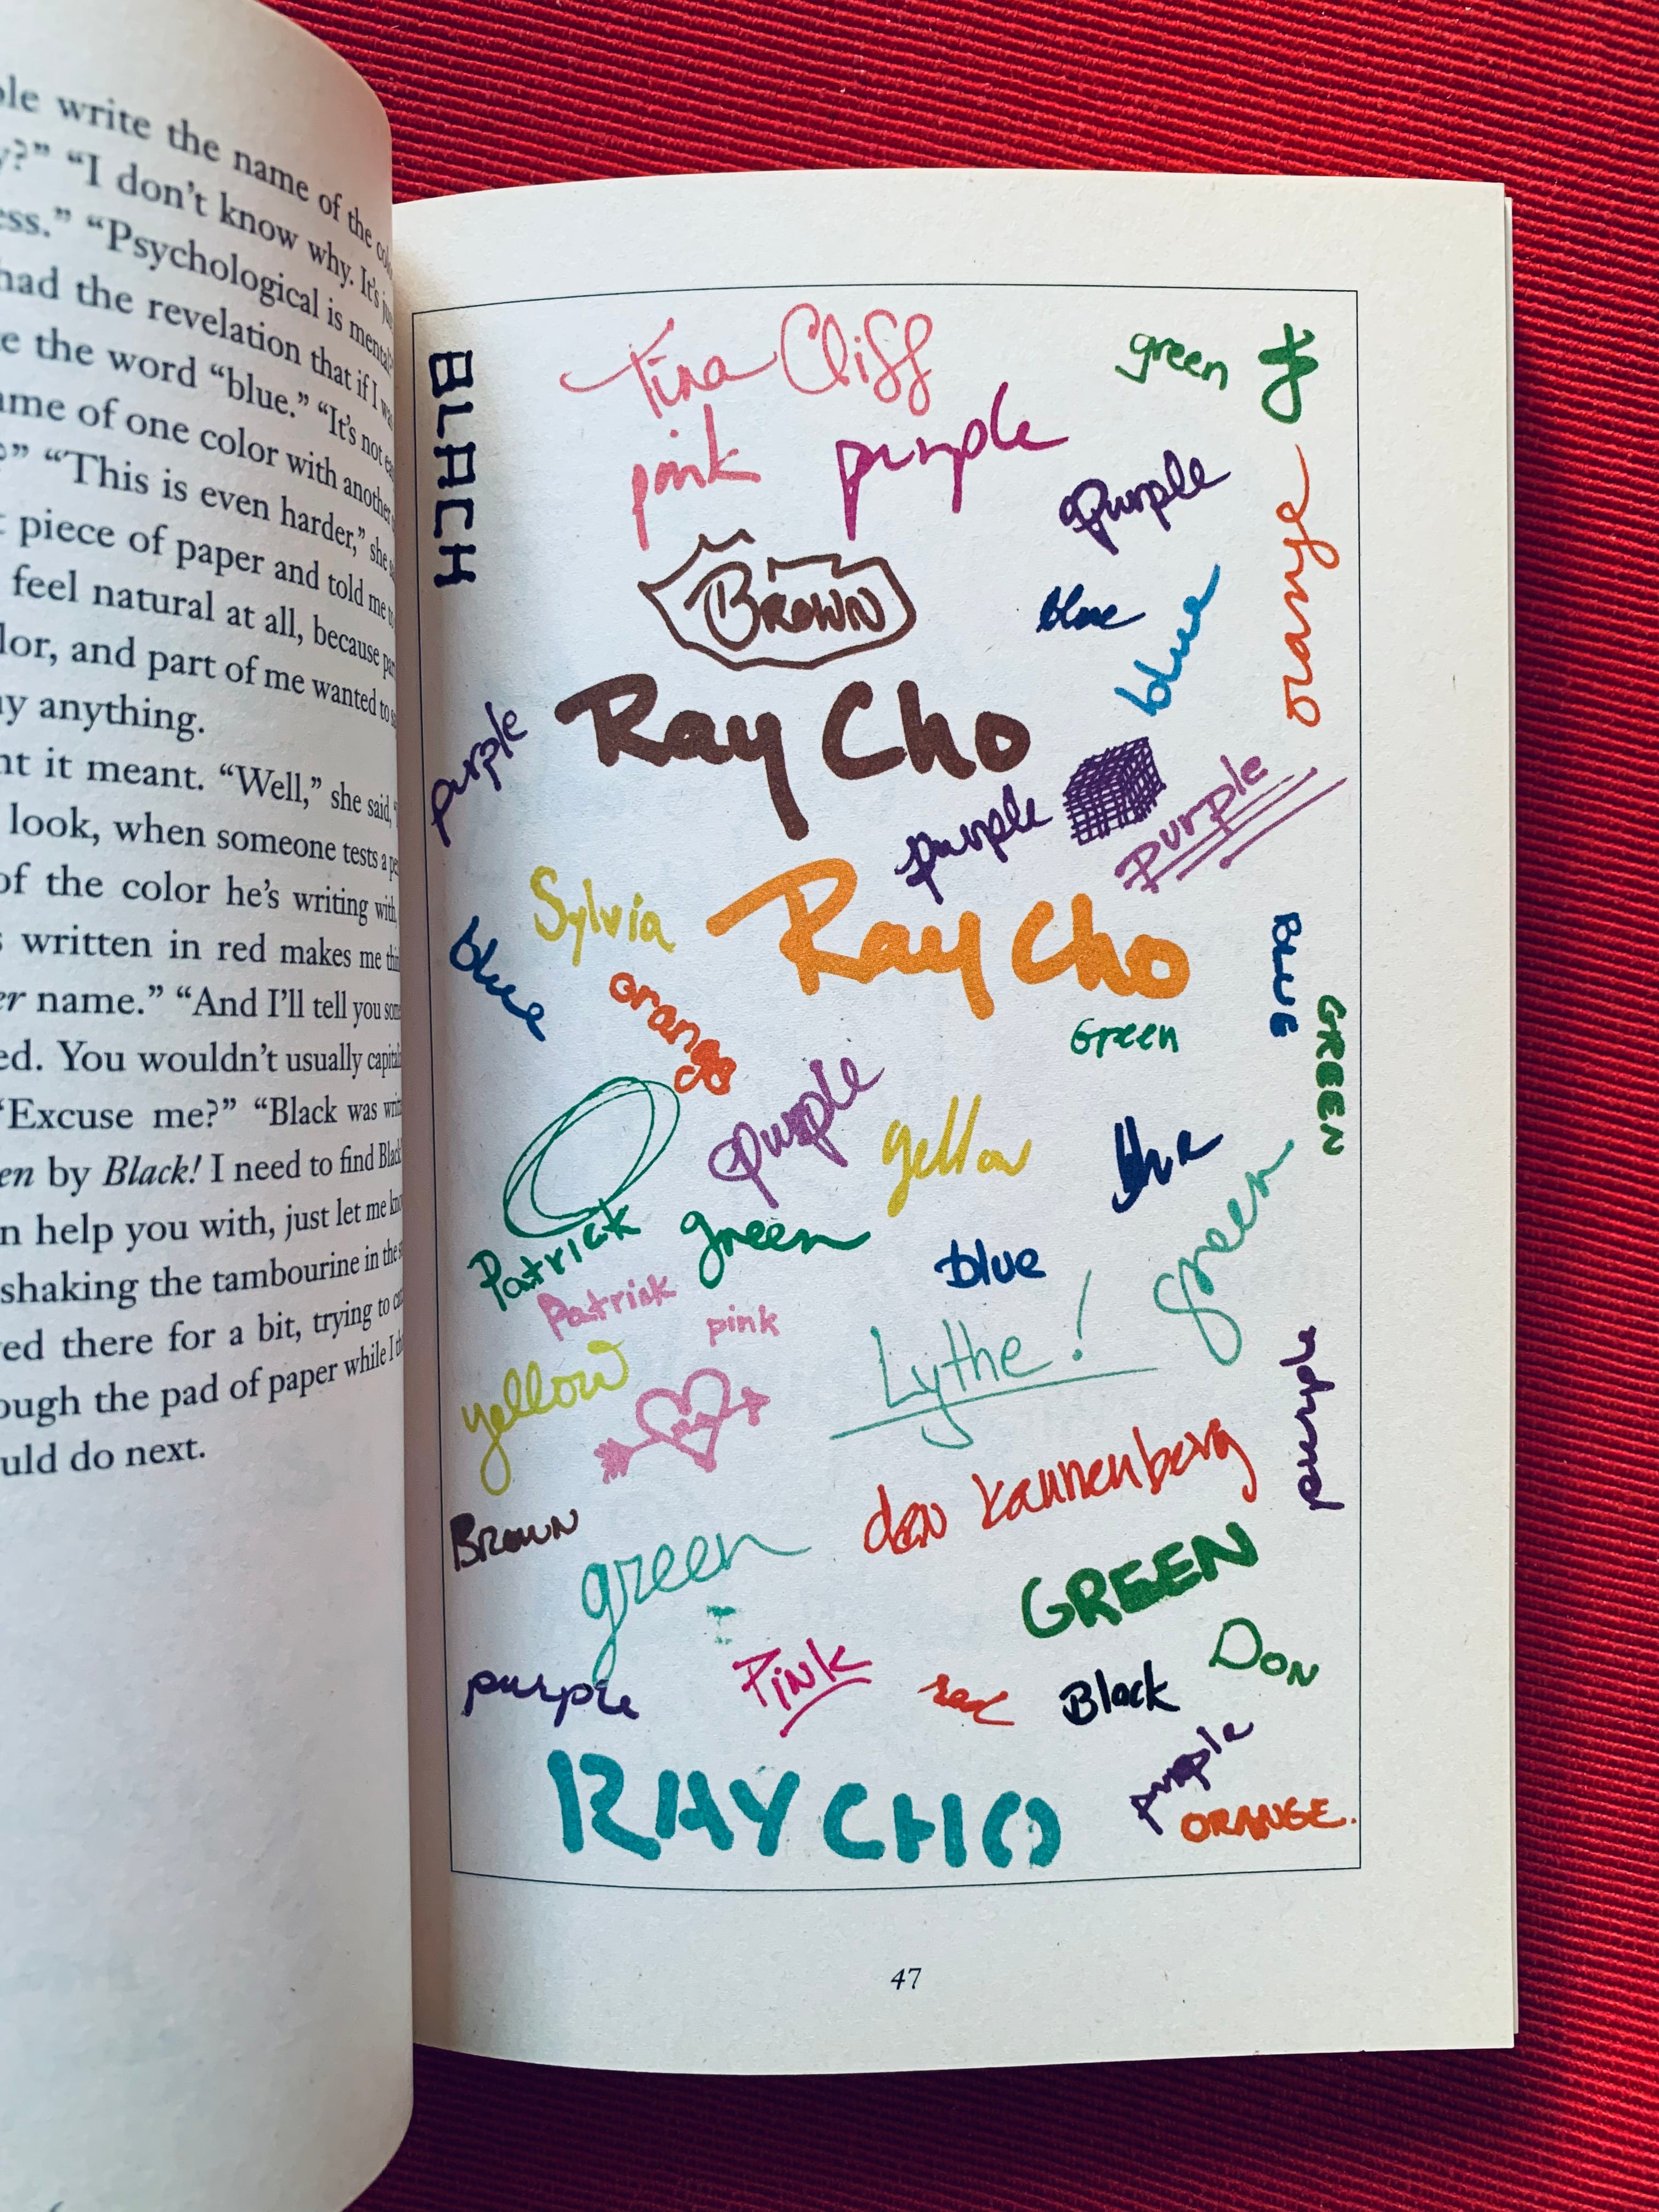 ple write the name of the
y?” “I don’t know why. It’s
ess.” “Psychological is
had the revelation that if I
e the word “blue.” “It’s not
ame of one color with another
?” “This is even harder,” she
t piece of paper and told me
feel natural at all, because
lor, and part of me wanted to
ay anything.
nt it meant. “Well,” she said,
look, when someone tests a
of the color he’s writing with,
s written in red makes me
er name.” “And I’ll tell you
ed. You wouldn’t usually
“Excuse me?” “Black was
en by Black! I need to find
n help you with, just let me
shaking the tambourine in the
ed there for a bit, trying to
ough the pad of paper while I
uld do next.
BLACK
Tina Cliff
green
pink
purple
Purple
orange
Brown
blue
blue
Ray Cho
purple
purple
purple
Sylvia
Ray Cho
blue
orange
BLUE
Green
GREEN
purple
yellow
blue
Patrick
green
blue
green
Patrick
pink
Lythe!
yellow
purple
den Kannenberg
Brown
green
GREEN
Don
purple
Pink
red
Black
purple
RAY CHO
ORANGE.
47